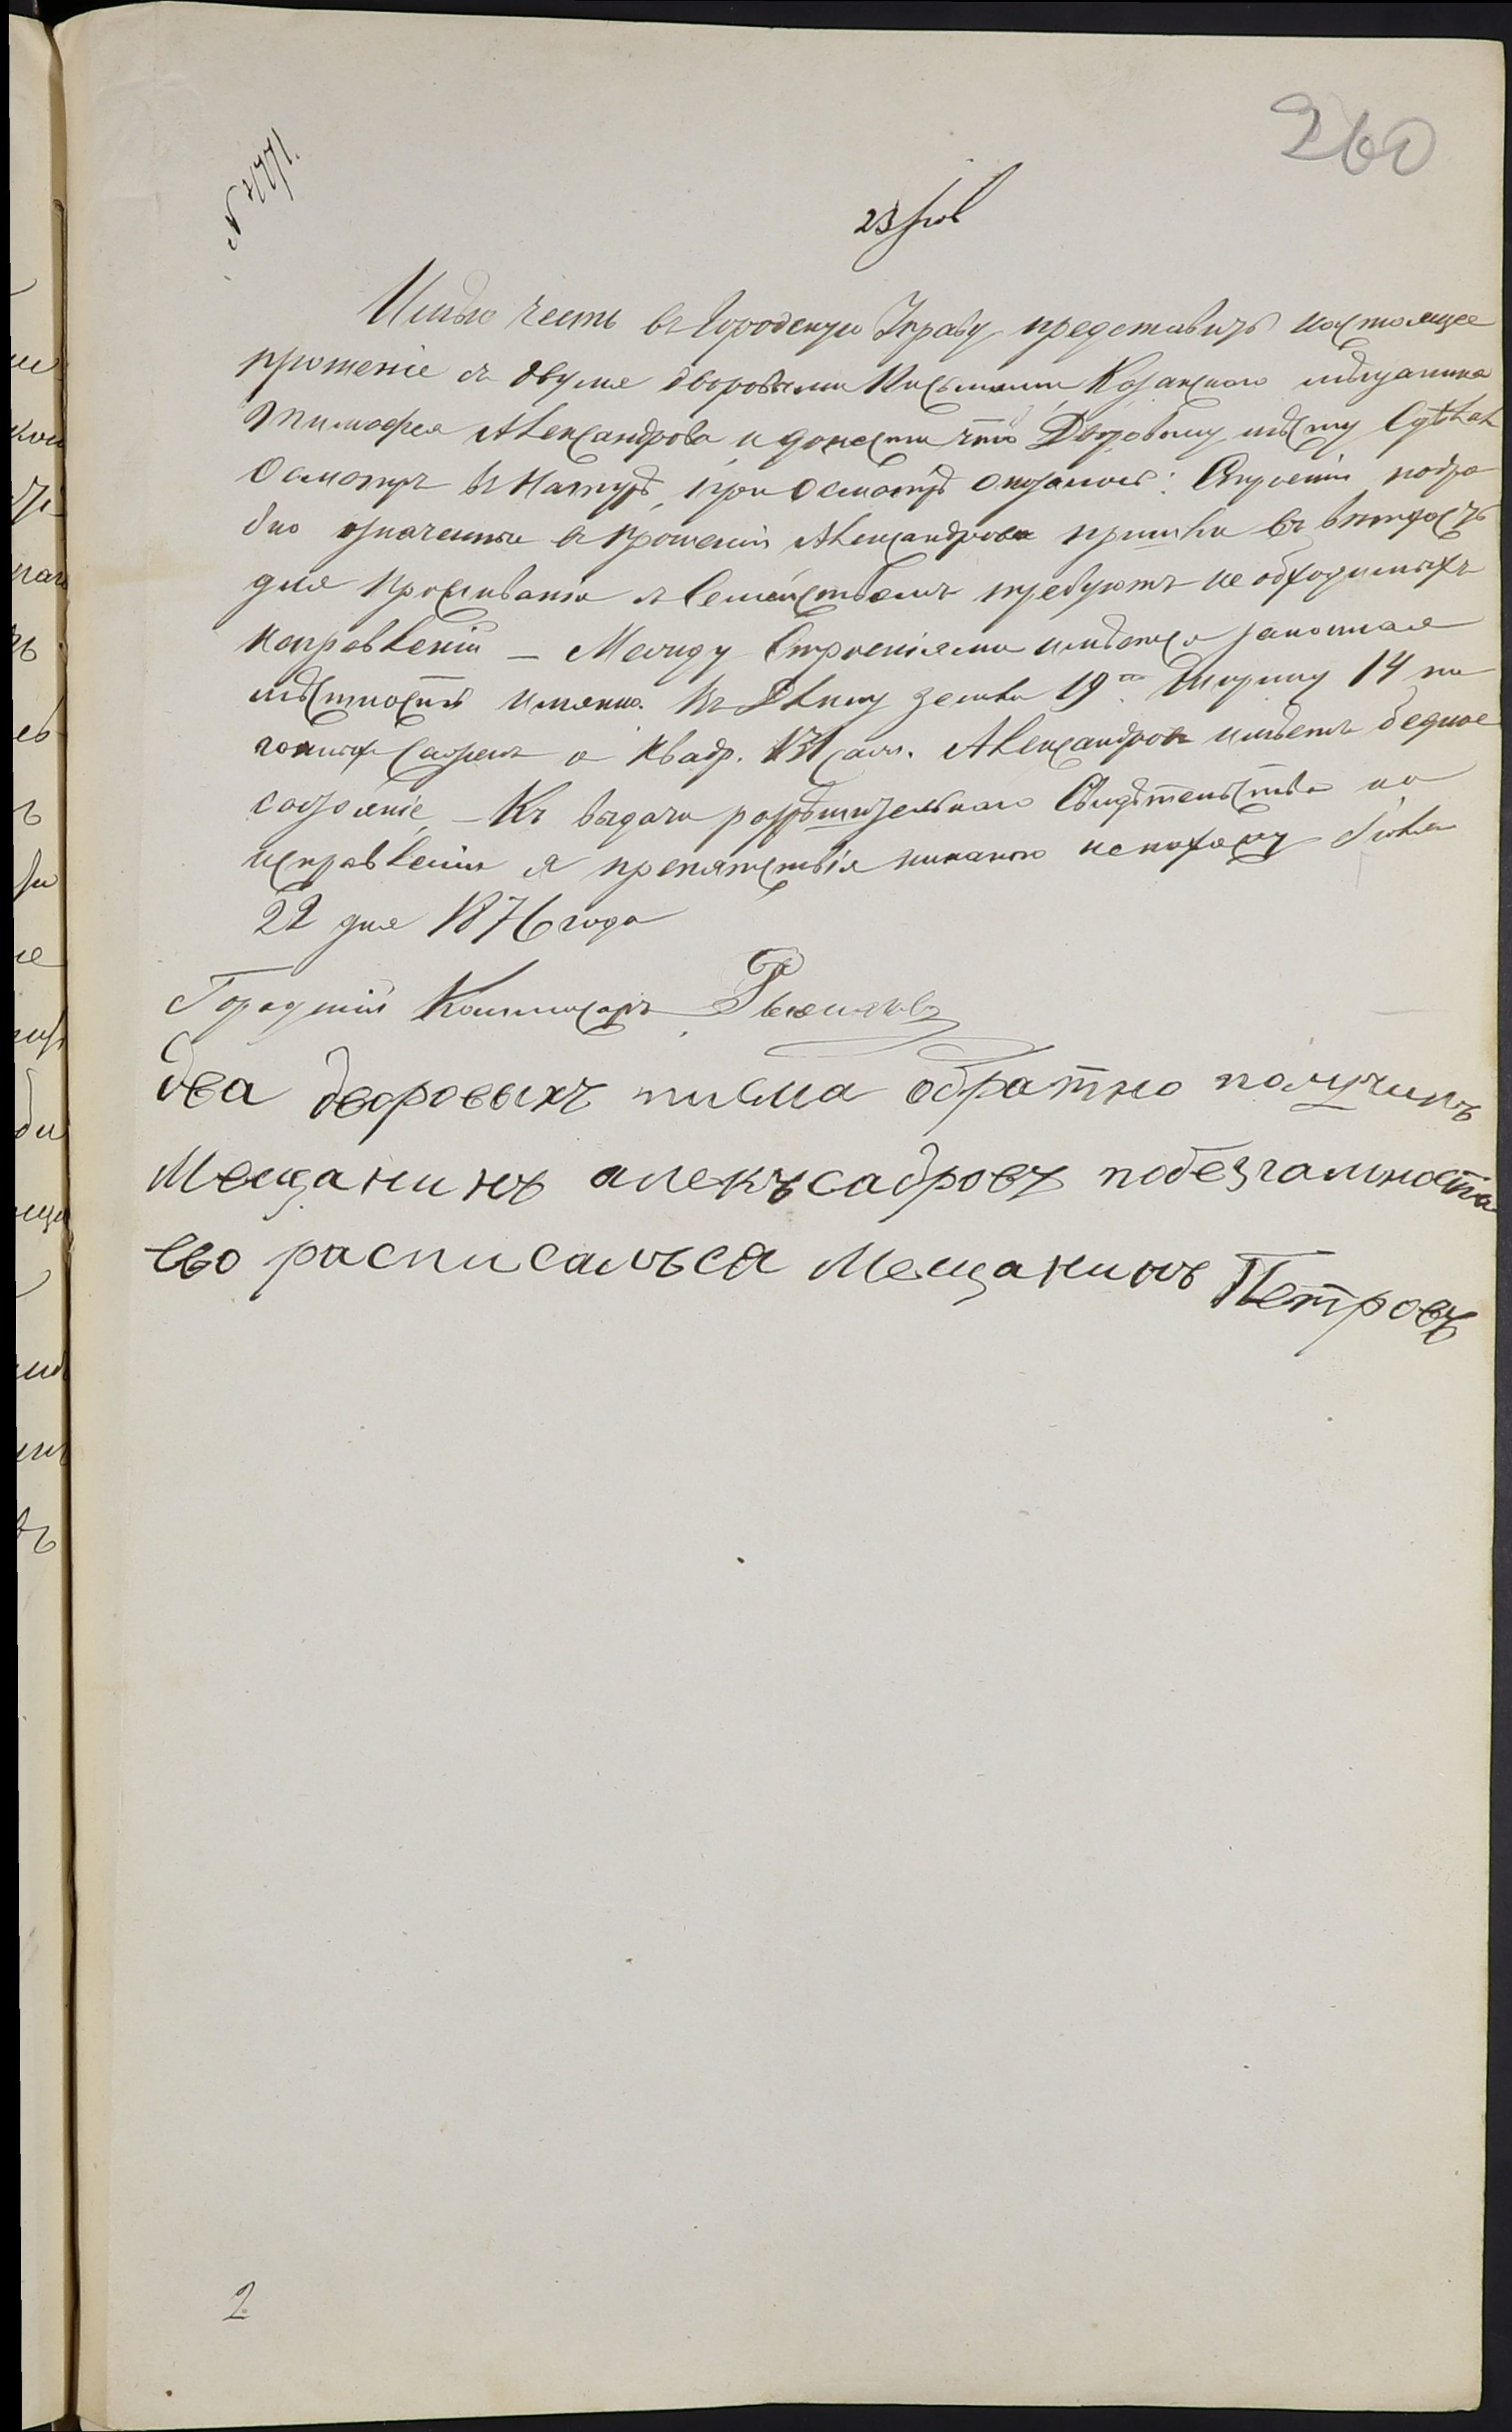 260
23 Іюл
Имѣю честь въ Городскую Управу представить настоящее
прошеніе съ двумя дворовыми письмами Казанскаго мѣщанина
Тимофея Александрова и донести что Дворовому мѣсту Сдѣлалъ
Осмотръ въ Натурѣ, при Осмотрѣ оказалось: Строеніи подро
бно означенные въ прошеніи Александрова пришли въ ветхость
для проживанія съ Семействомъ требуютъ не обходимыхъ
исправленій — Между Строеніями имѣется законная
мѣстность имянно. Въ Длину земли 19 ширину 14 по
гонныхъ Сажень а Квадр. саж. Александровъ имѣетъ бедное
состояніе, — Къ выдачи разрѣшительнаго Свидѣтельства на
исправленія я препятствія никакого не нахожу Іюля
22 дня 1876 года
Городской Коммисаръ
два дворовыхъ писма обратно получилъ
Мещанинъ алекъсадровъ побезграмности
ево расписалъся Мещанинъ Петровъ
2